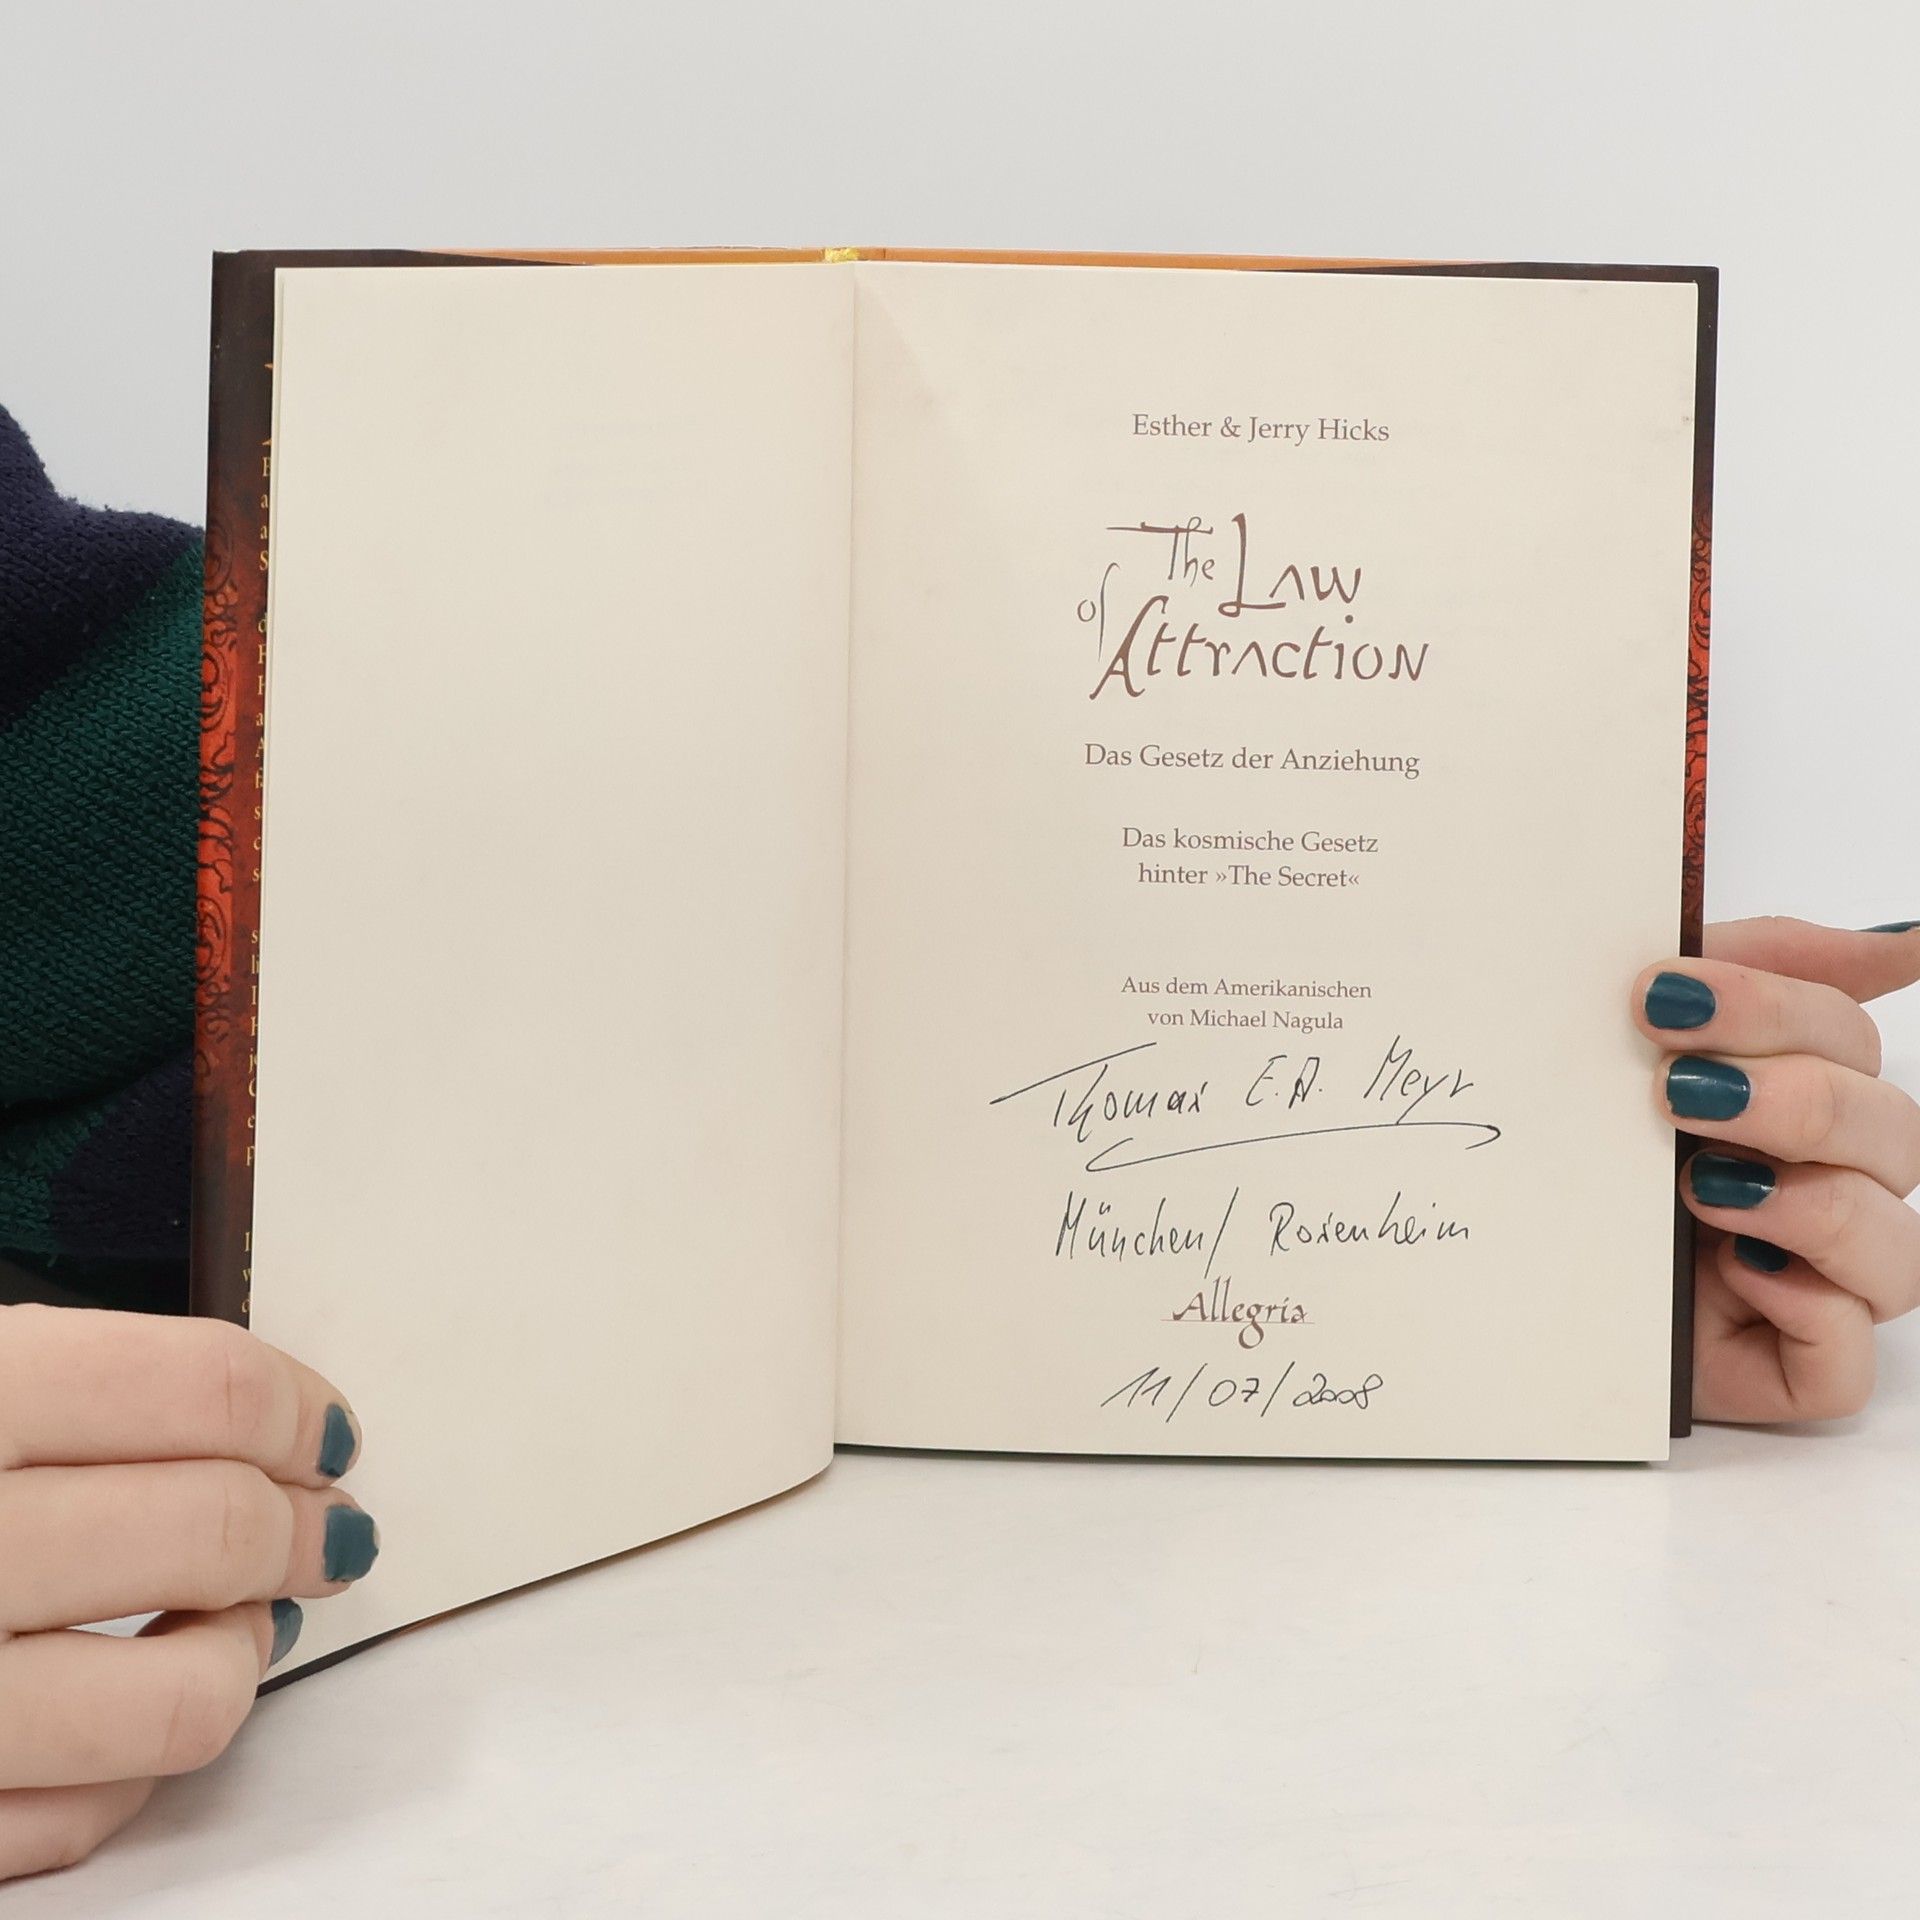 Esther & Jerry Hicks
The Law
of Attraction
Das Gesetz der Anziehung
Das kosmische Gesetz
hinter »The Secret«
Aus dem Amerikanischen
von Michael Nagula
Thomas E.A. Meyr
München/ Rosenheim
Allegria
11/07/2008